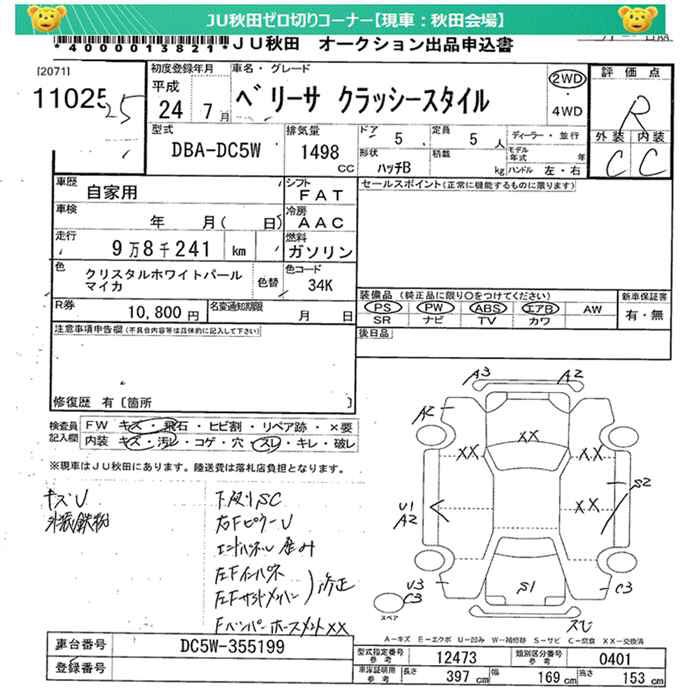 JU秋田ゼロ切りコーナー【現車：秋田会場】
*4000013821* JU秋田 オークション出品申込書
[2071]
11025
25
初度登録年月
平成
24年7月
車名・グレード
ベリーサ クラッシースタイル
2WD
・
4WD
評価点
R
外装 内装
C C
型式
DBA-DC5W
排気量
1498 CC
ドア 5
定員 5人
ディーラー・並行
形状 ハッチB
積載 kg
モデル年式 年
ハンドル 左・右
車歴
自家用
シフト
FAT
セールスポイント(正常に機能するものに限ります)
車検
年 月( 日)
冷房
AAC
走行
9万8千241 km
燃料
ガソリン
色
クリスタルホワイトパールマイカ
色替
色コード
34K
R券
10,800円
名変通知期限
月 日
装備品(純正品に限り○をつけてください)
PS・PW・ABS・エアB・AW
SR ナビ TV カワ
新車保証書
有・無
注意事項申告欄(不具合内容等は具体的に記入して下さい)
後日品
修復歴 有〔箇所 〕
検査員記入欄
FW キズ・飛石・ヒビ割・リペア跡・×要
内装 キズ・汚レ・コゲ・穴・スレ・キレ・破レ
※現車はJU秋田にあります。陸送費は落札店負担となります。
キズU
外装鉄粉
下廻りSC
右FピラーU
エンドパネル歪み
左Fインパネ
左Fサイドメンバー
修正
FバンパーホースメントXX
A3 A2
A2
XX
XX
XX
XX
U1
A2
S2
U3
C3
S1
C3
スレ
スペア
A-キズ E-エクボ U-凹み W-補修跡 S-サビ C-腐食 XX-交換済
車台番号
DC5W-355199
登録番号
型式指定番号
参考
12473
類別区分番号
参考
0401
車庫証明用
参考
長さ 397 cm
幅 169 cm
高さ 153 cm